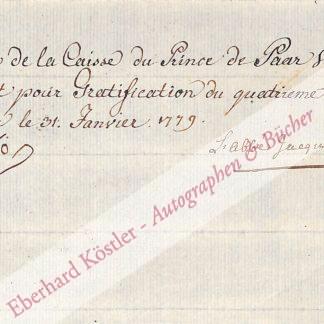 de la Caisse du Prince de Paar
pour Gratification du quatrieme
le 31. Janvier. 1779.
L'abbé Jacqu
Eberhard Köstler - Autographen & Bücher